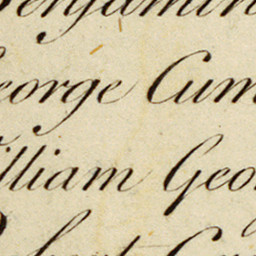 Benjamin
George Cum
William Geo
Robert